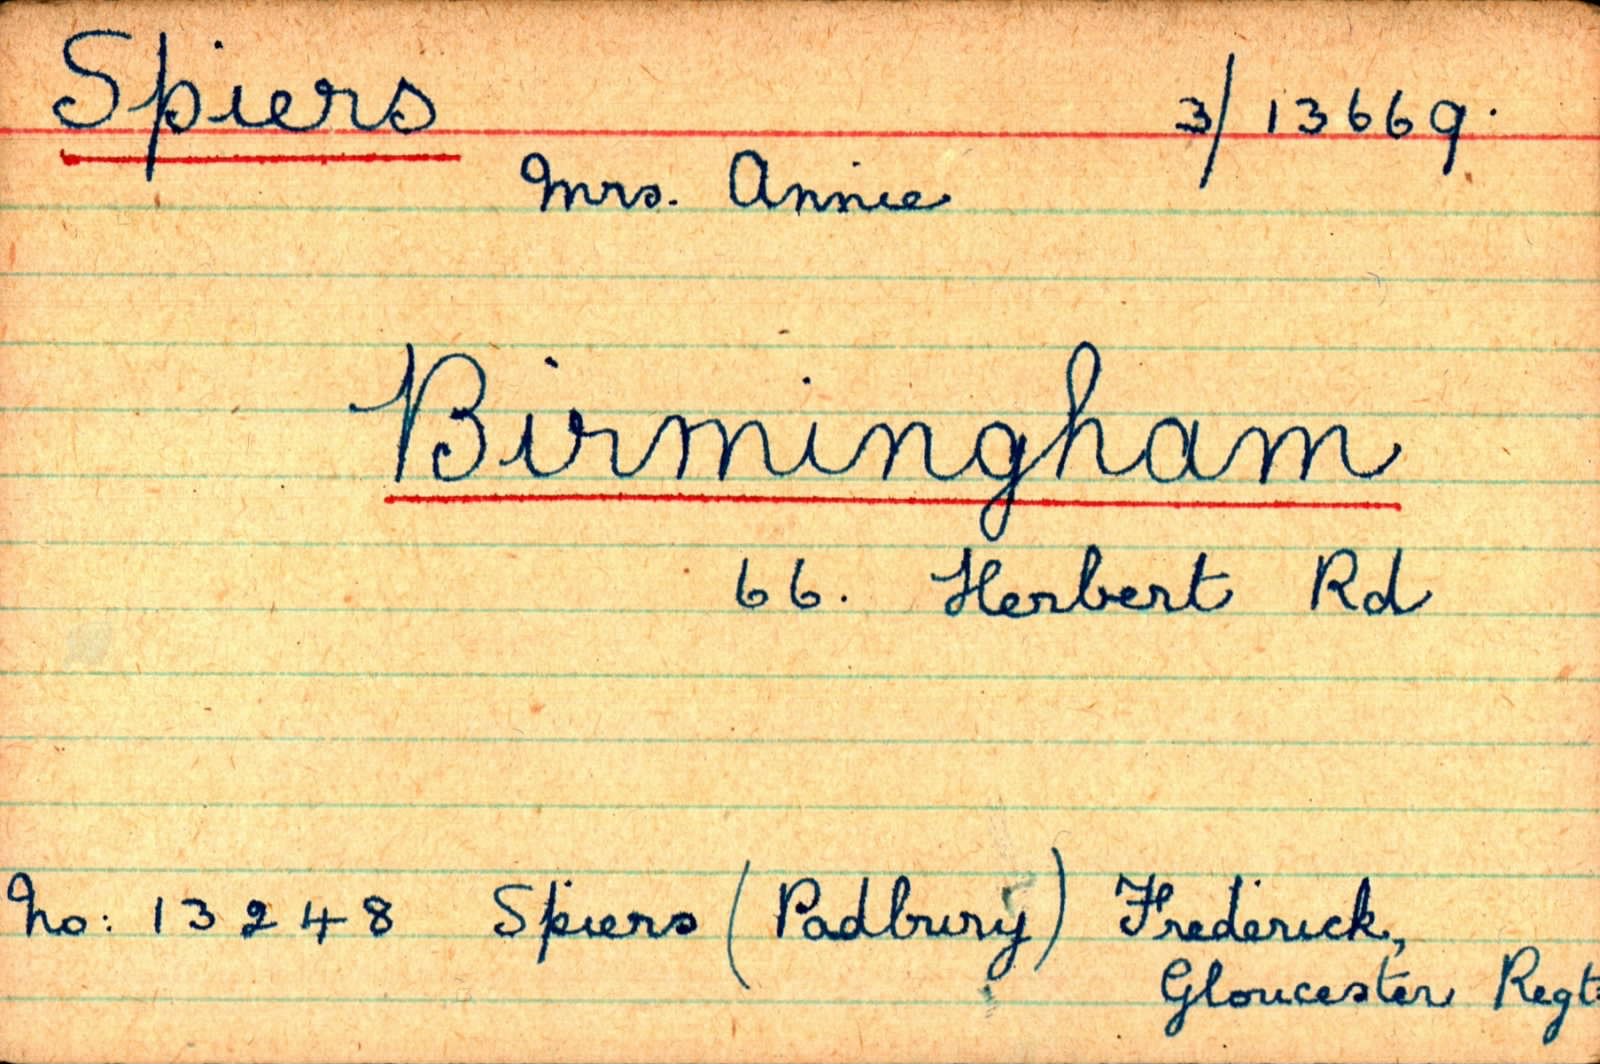 Spiers 3/13669.
Mrs. Annie
Birmingham
66. Herbert Rd
No: 13248 Spiers (Padbury) Frederick,
Gloucester Regt: